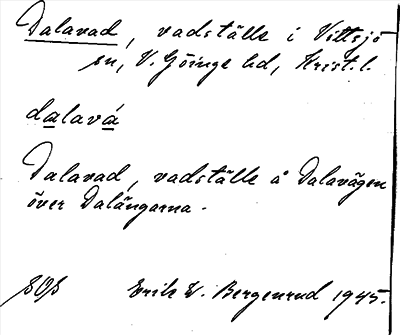 Dalavad, vadställe i Vittsjö
sn, V. Göinge hd, Krist. l.
dalavá
Dalavad, vadställe å Dalavägen
över Dalängarna.
Erik W. Bergenrud 1945.